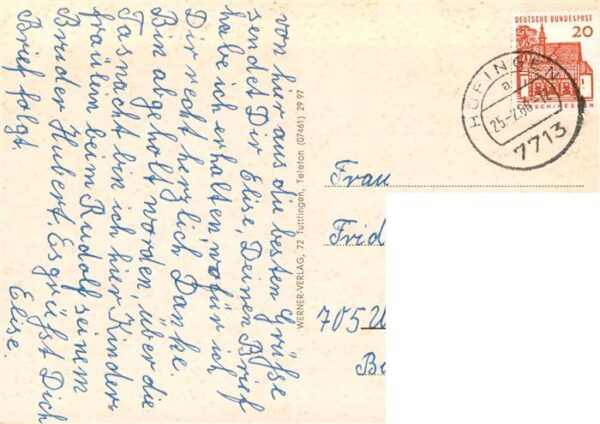 von hier aus die besten Grüße
sendet Dir Elise, Deinen Brief
habe ich erhalten, wofür ich
Dir recht herzlich Danke.
Bin abgeholt worden, über die
Fasnacht bin ich hier, Kinder-
fräulein beim Rudolf seinem
Bruder Hubert. Es grüßt Dich
Elise.
Brief folgt.
WERNER-VERLAG, 72 Tuttlingen, Telefon (07461) 29 97
DEUTSCHE BUNDESPOST
20
HÜFINGEN
a
25.-2.66
7713
Frau
Frid
705